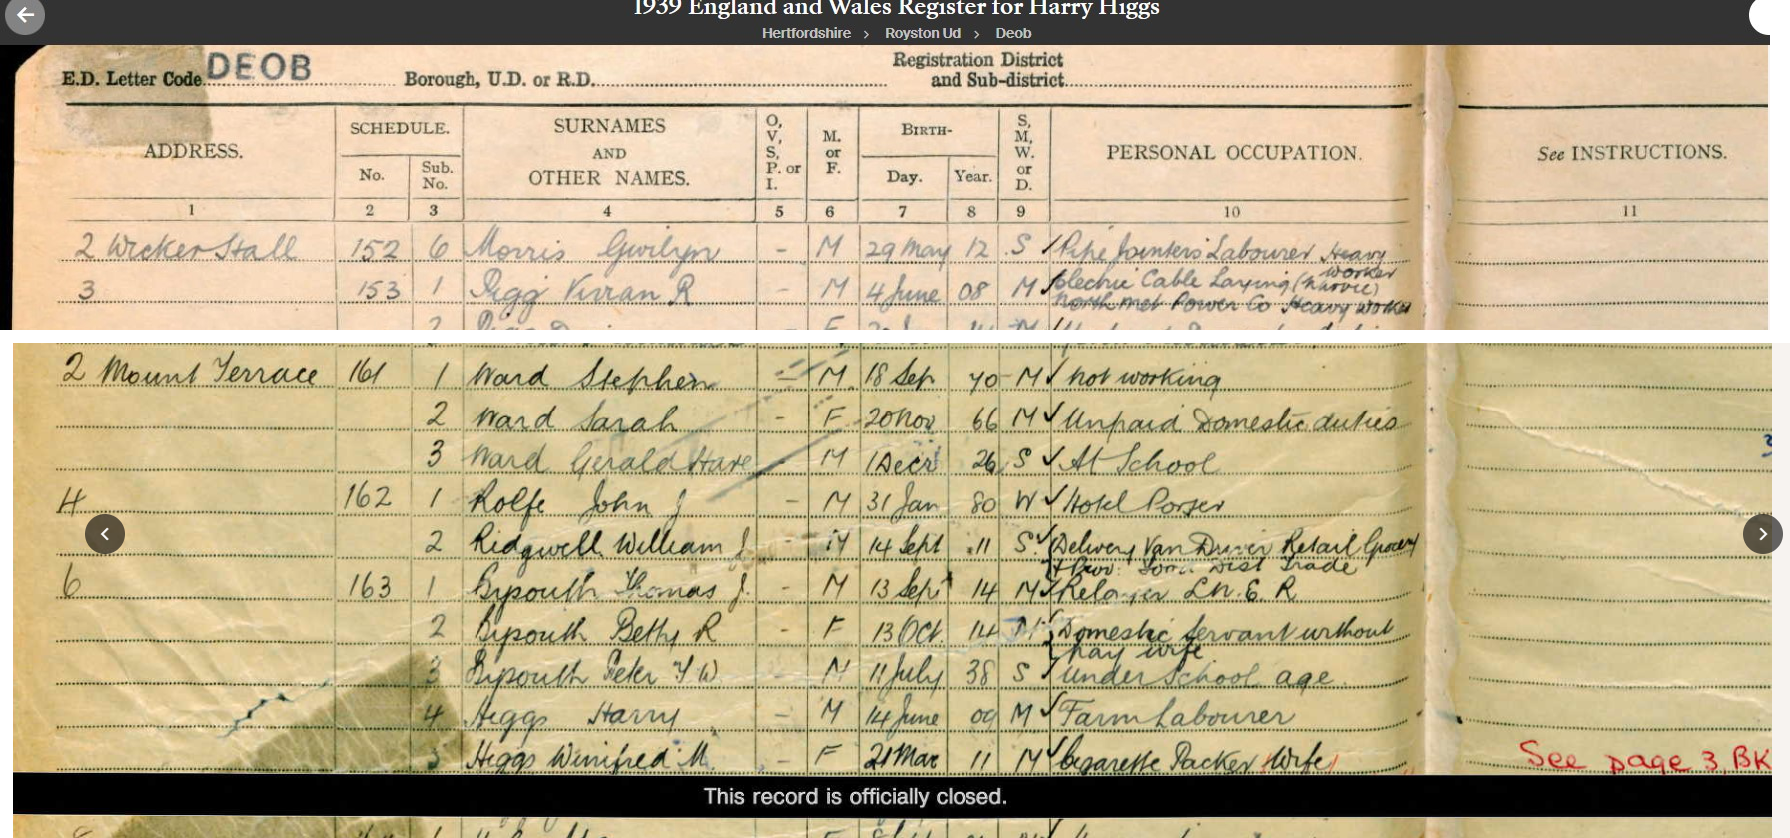 1939 England and Wales Register for Harry Higgs
Hertfordshire > Royston Ud > Deob
E.D. Letter Code DEOB Borough, U.D. or R.D. Registration District and Sub-district
ADDRESS. SCHEDULE. No. Sub. No. SURNAMES AND OTHER NAMES. O, V, S, P. or I. M. or F. BIRTH- Day. Year. S, M, W. or D. PERSONAL OCCUPATION. See INSTRUCTIONS.
1 2 3 4 5 6 7 8 9 10 11
2 Wicker Hall 152 6 Morris Gwilym - M 29 May 12 S Pipe Jointers Labourer Heavy Worker
3 153 1 Pigg Vivian R - M 4 June 08 M Electric Cable Laying (Navvie)
North Met Power Co Heavy Worker
2 Mount Terrace 161 1 Ward Stephen - M 18 Sep 70 M Not working
2 Ward Sarah - F 20 Nov 66 M Unpaid Domestic duties
3 Ward Gerald - M 1 Decr 26 S At School
4 162 1 Rolfe John J - M 31 Jan 80 W Hotel Porter
2 Ridgwell William J. - M 14 Sept 11 S Delivery Van Driver Retail Grocery
Trade
6 163 1 Bysouth Thomas J. - M 13 Sept 14 M L.N.E.R
2 Bysouth Betty R - F 13 Oct. 14 M Domestic Servant without
pay wife
3 Bysouth Peter W - M 11 July 38 S Under School age
4 Higgs Harry - M 14 June 09 M Farm Labourer
5 Higgs Winifred M. - F 21 Mar 11 M Cigarette Packer (Wife) See page 3, BK
This record is officially closed.